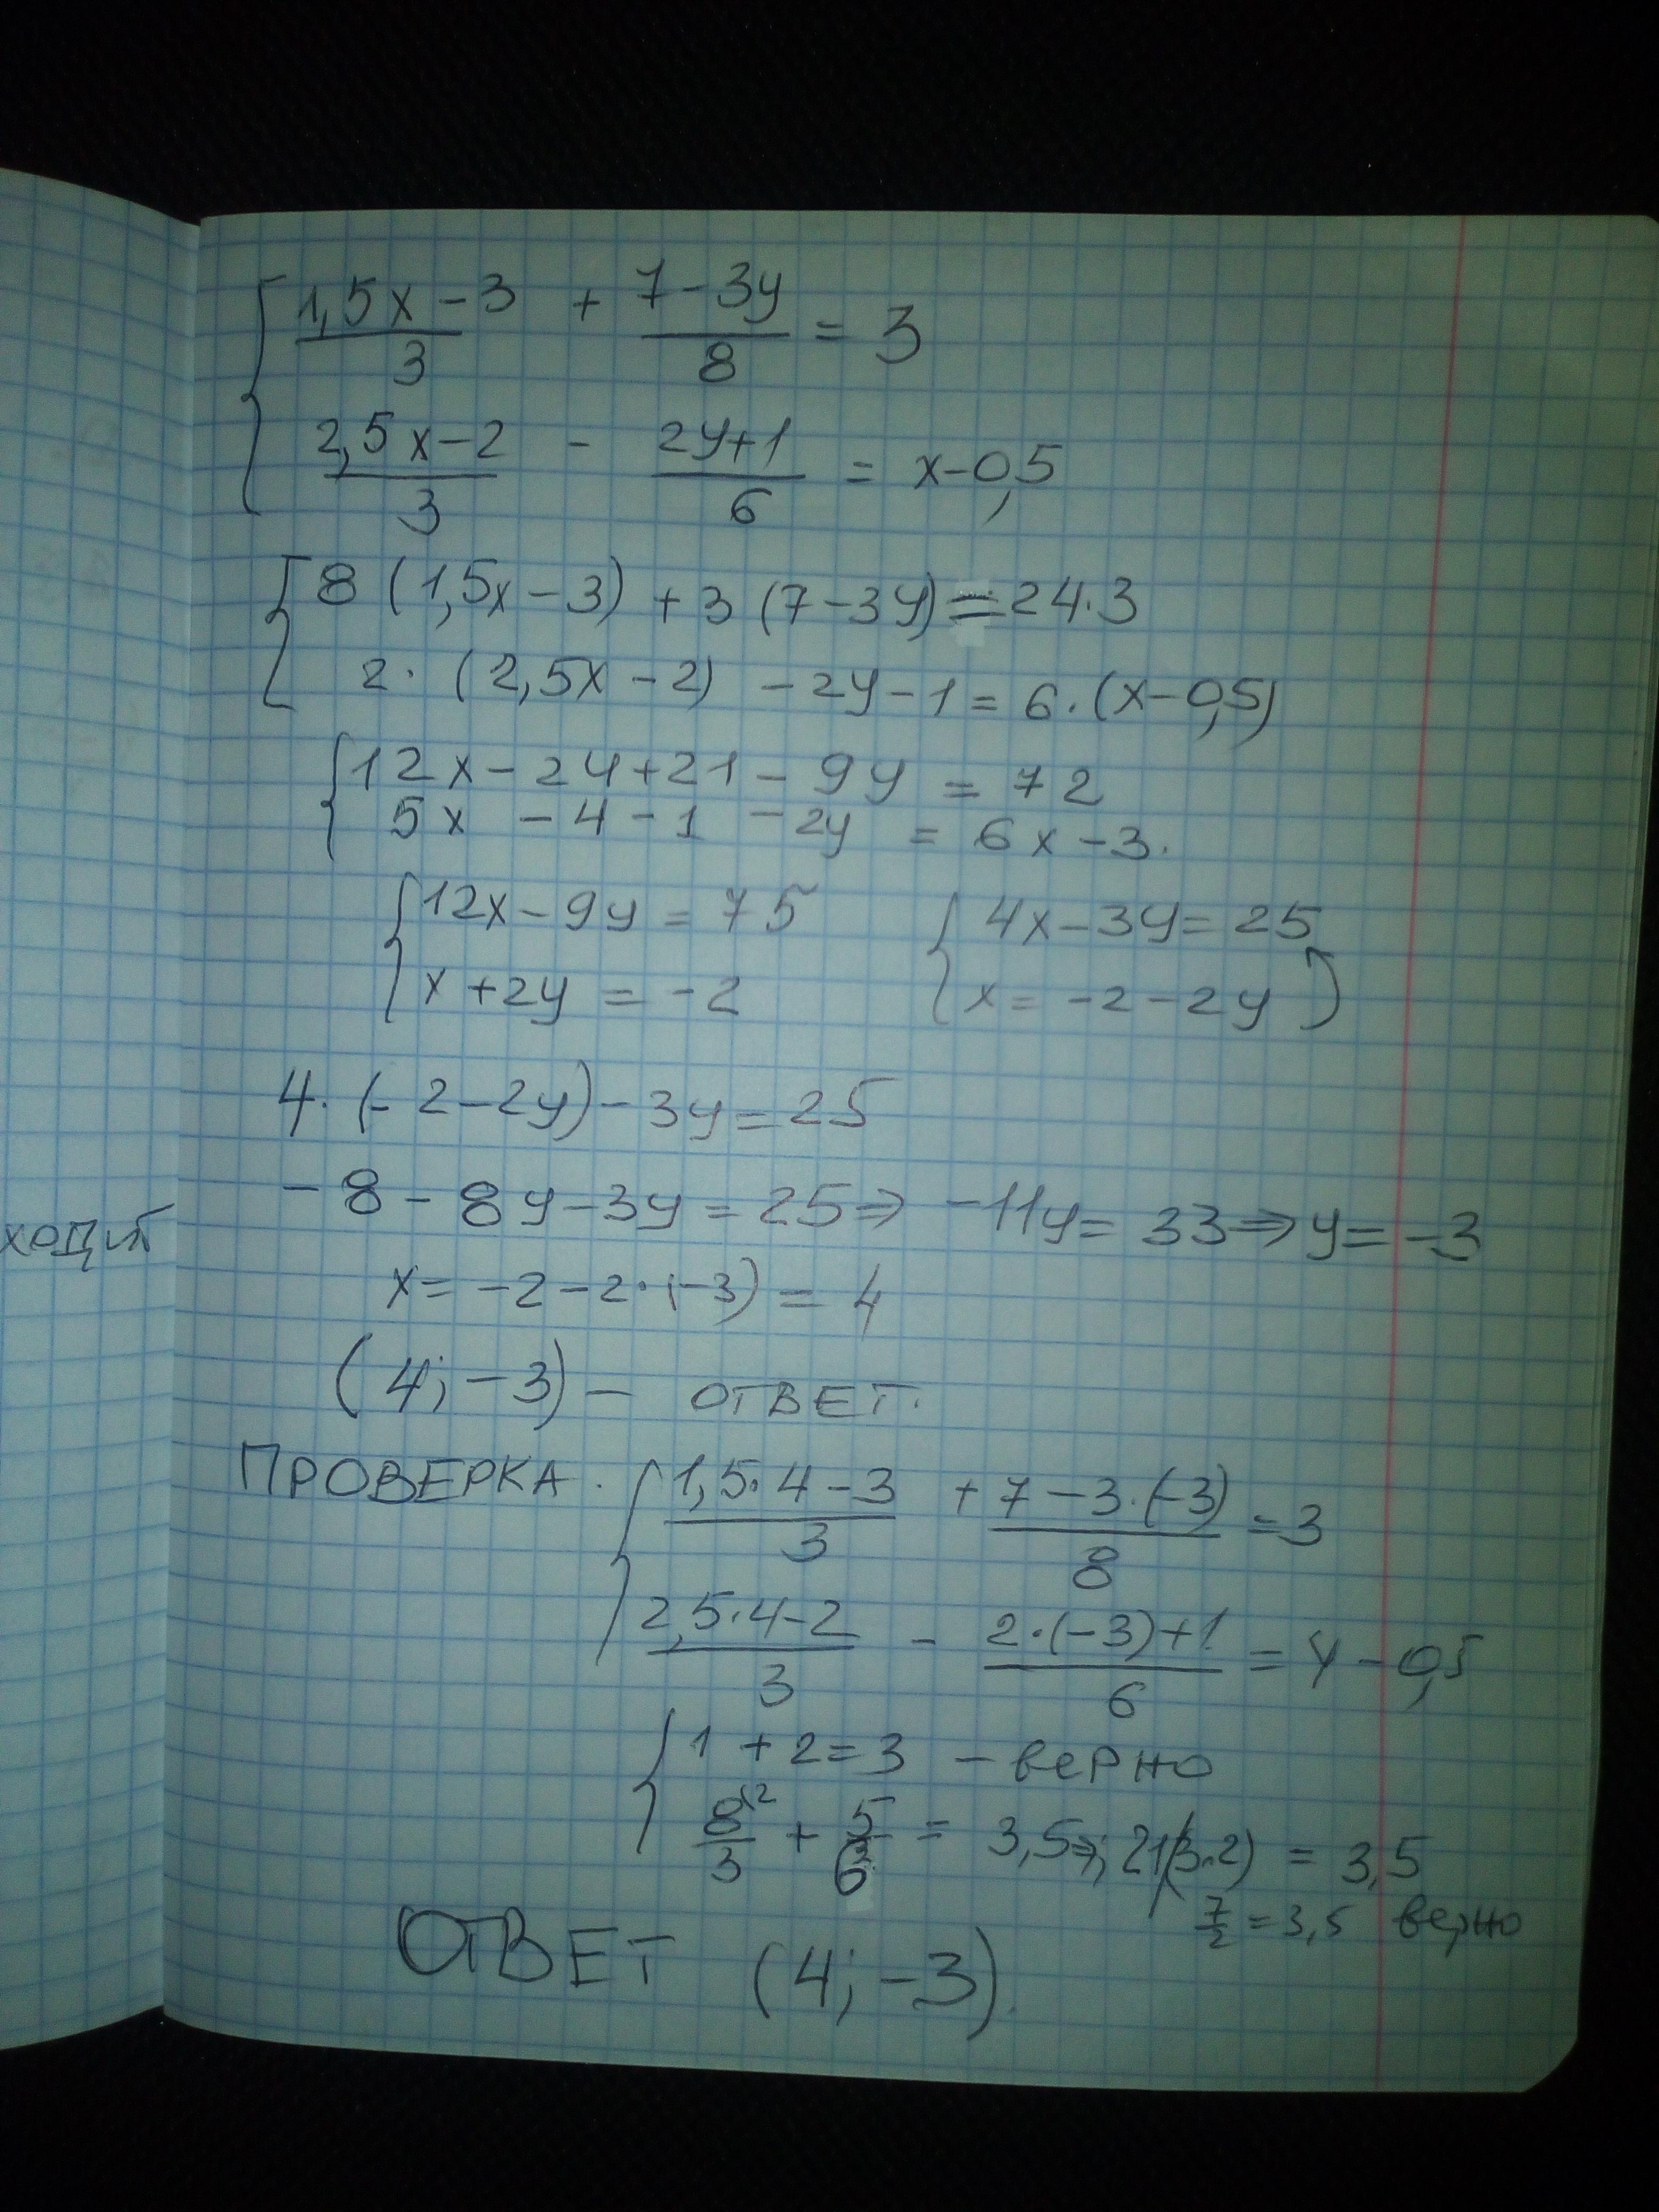 { (1,5x-3)/3 + (7-3y)/8 = 3
(2,5x-2)/3 - (2y+1)/6 = x-0,5
{ 8 (1,5x-3) + 3 (7-3y) = 24·3
2· (2,5x-2) - 2y - 1 = 6·(x-0,5)
{ 12x - 24 + 21 - 9y = 72
5x - 4 - 1 - 2y = 6x - 3.
{ 12x - 9y = 75 { 4x - 3y = 25
x + 2y = -2 x = -2 - 2y
4·(-2-2y) - 3y = 25
-8 - 8y - 3y = 25 ⇒ -11y = 33 ⇒ y = -3
ходит
x = -2 - 2·(-3) = 4
(4; -3) - ответ.
Проверка. { (1,5·4-3)/3 + (7-3·(-3))/8 = 3
(2,5·4-2)/3 - (2·(-3)+1)/6 = 4 - 0,5
{ 1 + 2 = 3 - верно
8^2/3 + 5/6 = 3,5 ⇒; 21/(3·2) = 3,5
7/2 = 3,5 верно
Ответ (4; -3).